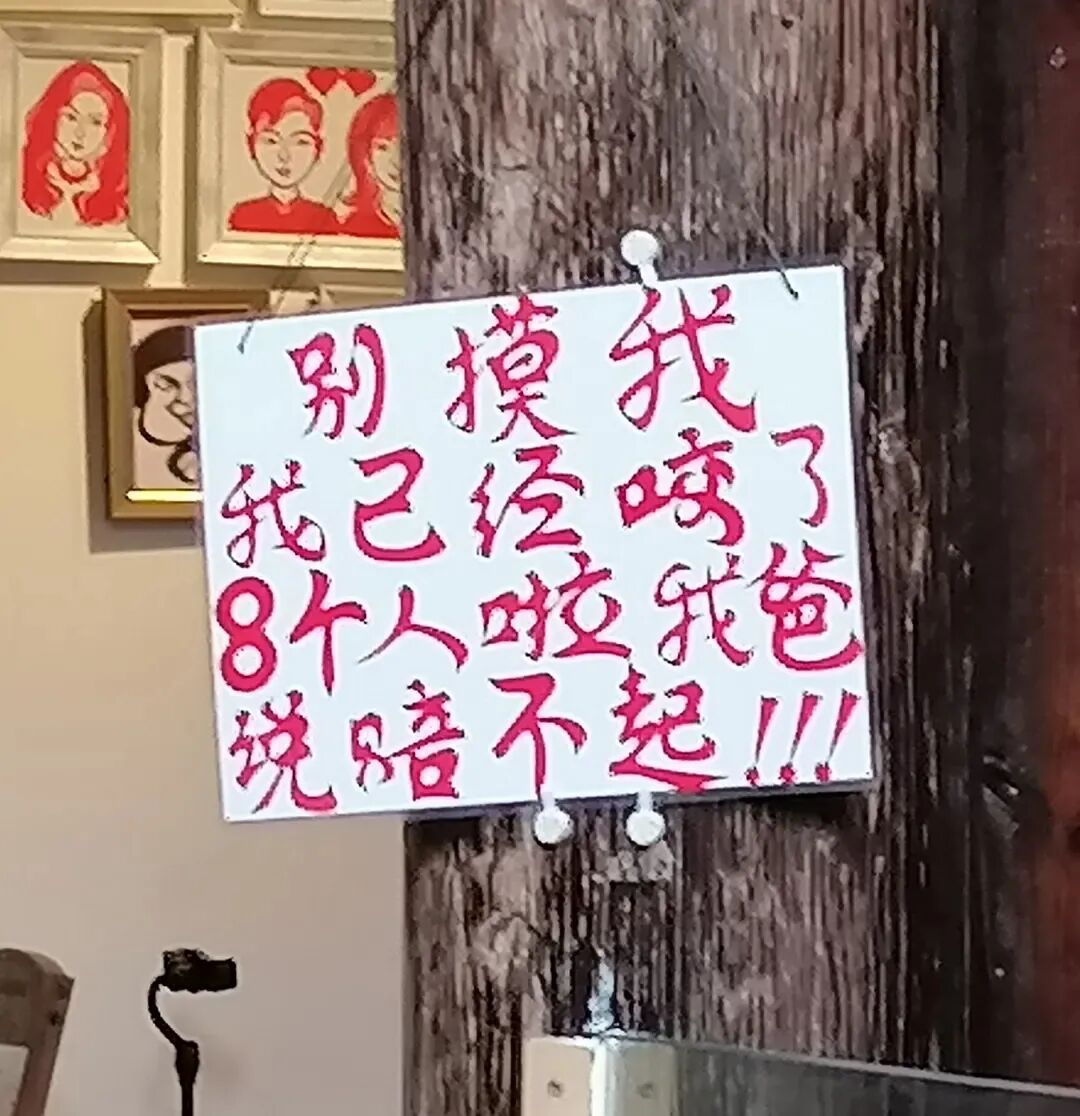 别摸我
我已经咬了
8个人啦我爸
说赔不起!!!